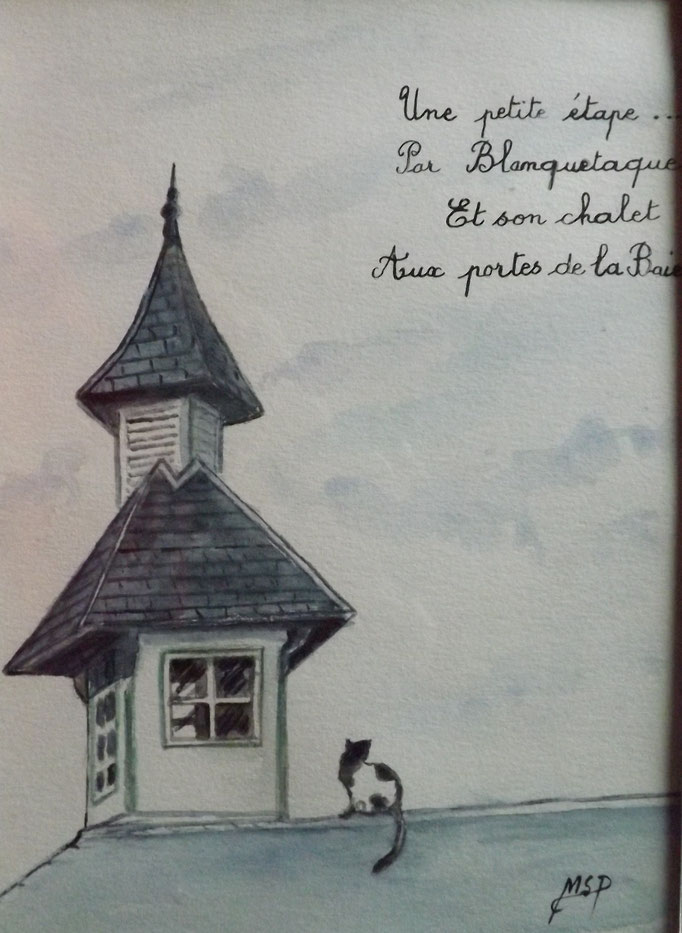 Une petite étape ...
Par Blanquetaque
Et son chalet
Aux portes de la Baie
MSP